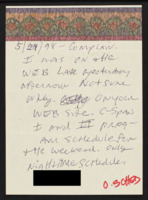 5/29/98 - Complain.
I was on the
WEB Late yesterday
afternoon. Not sure
why. On your
WEB Site. C-Span
I and II prog-
ram schedule for
the weekend. only
nighttime schedule.